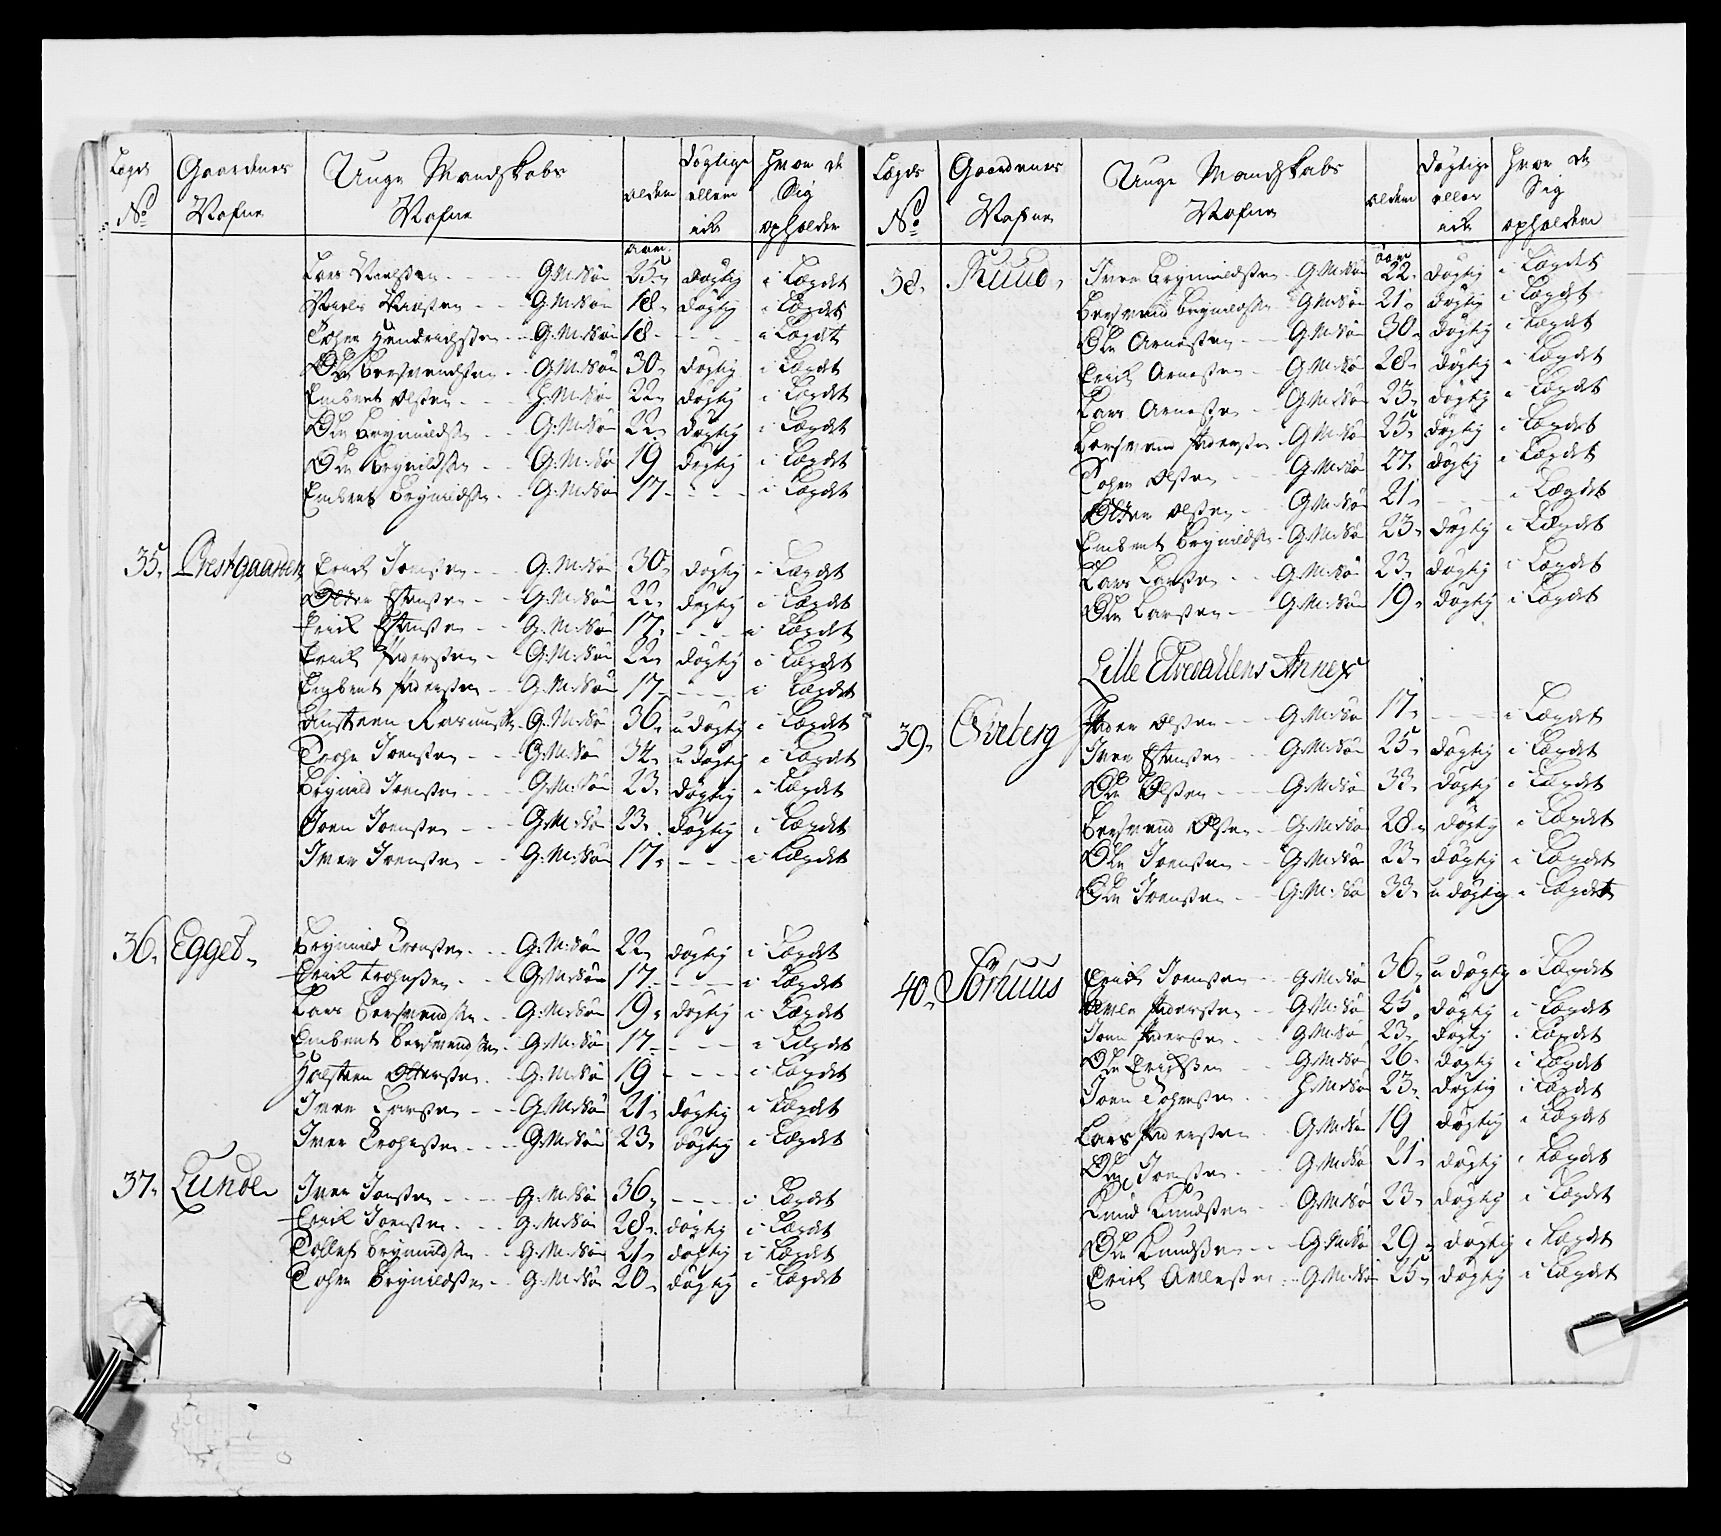 Lægds No Gaardenes Nafne Unge Mandskabs Nafne Alder Dögtige eller ick Hvor de Sig opholder
aar.
Lars Nielsen G:M:Sön 25 dögtig i Lægdet
Niels Nielsen G:M:Sön 18 dögtig i Lægdet
Johan Hendrichsen G:M:Sön 18 i Lægdet
Ole Bersvendsen G:M:Sön 30 dögtig i Lægdet
Embret Olsen H:M:Sön 22 dögtig i Lægdet
Ole Brynildsen G:M:Sön 22 dögtig i Lægdet
Ole Brynildsen G:M:Sö 19 dögtig i Lægdet
Embret Brynildsen G:M:Sön 17 i Lægdet
35. Prestgaarden Erich Jonsen G:M:Sön 30 dögtig i Lægdet
Otter Estensen G:M:Sön 22 dögtig i Lægdet
Erich Estensen G:M:Sön 17 i Lægdet
Erich Pedersen G:M:Sön 22 dögtig i Lægdet
Embret Pedersen G:M:Sön 17 i Lægdet
Rasmusen G:M:Sön 36 udögtig i Lægdet
Joensen G:M:Sön 34 udögtig i Lægdet
Brynild Joensen G:M:Sön 23 dögtig i Lægdet
Joen Joensen G:M:Sön 23 dögtig i Lægdet
Iver Joensen G:M:Sön 17 i Lægdet
36. Egget Brynild G:M:Sön 22 dögtig i Lægdet
Erich G:M:Sön 17 i Lægdet
Lars Bersvendsen G:M:Sön 19 dögtig i Lægdet
Embret Bersvendsen G:M:Sön 17 i Lægdet
Halsteen Ottersen G:M:Sön 19 i Lægdet
Iver Larsen G:M:Sön 21 dögtig i Lægdet
Iver G:M:Sön 23 dögtig i Lægdet
37. Lunde Iver Jonsen G:M:Sön 36 i Lægdet
Erich Joensen G:M:Sön 28 dögtig i Lægdet
Tollef Brynildsen G:M:Sön 21 dögtig i Lægdet
Johan Brynildsen G:M:Sön 20 dögtig i Lægdet
Lægds No Gaardenes Nafne Unge Mandskabs Nafne Alder Dögtige eller ick Hvor de Sig opholder
aar
38. Ruud Iver Brynildsen G:M:Sön 22 dögtig i Lægdet
Bersvend Brynildsen G:M:Sön 21 dögtig i Lægdet
Ole Arnesen G:M:Sön 30 dögtig i Lægdet
Erich Arnesen G:M:Sö 28 dögtig i Lægdet
Lars Arnesen G:M:Sön 23 dögtig i Lægdet
Bersvend Pedersen G:M:Sö 25 dögtig i Lægdet
Johan Olsen G:M:Sö 27 dögtig i Lægdet
Otter Olsen G:M:Sön 21 i Lægdet
Embret Brynildsen G:M:Sö 23 dögtig i Lægdet
Lars Larsen G:M:Sön 23 dögtig i Lægdet
Ole Larsen G:M:Sön 19 dögtig i Lægdet
Lille Elvedallens Annex
39. Qveberg Peder Olsen G:M:Sö 17 i Lægdet
Iver Estensen G:M:Sön 25 dögtig i Lægdet
Ole Olsen G:M:Sön 33 dögtig i Lægdet
Bersvend Olsen G:M:Sön 28 dögtig i Lægdet
Ole Joensen G:M:Sö 23 dögtig i Lægdet
Ole Joensen G:M:Sö 33 udögtig i Lægdet
40. Sörhuus Erich Joensen G:M:Sön 36 udögtig i Lægdet
Pedersen G:M:Sö 25 dögtig i Lægdet
Joen Pedersen G:M:Sö 23 dögtig i Lægdet
Ole Erichsen G:M:Sön 26 dögtig i Lægdet
Joen Johansen H:M:Sön 23 dögtig i Lægdet
Lars Pedersen G:M:Sön 19 dögtig i Lægdet
Ole Joensen G:M:Sön 21 dögtig i Lægdet
Knud Knudsen G:M:Sön 23 dögtig i Lægdet
Ole Knudsen G:M:Sön 29 dögtig i Lægdet
Erich G:M:Sön 25 dögtig i Lægdet